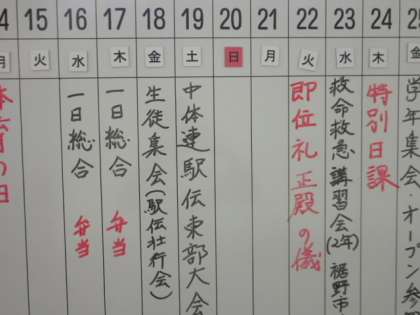 15
16
17
18
19
20
21
22
23
24
月
火
水
木
金
土
日
月
火
水
木
金
の日
一日総合 弁当
一日総合 弁当
生徒集会(駅伝壮行会)
中体連駅伝東部大会
即位礼正殿の儀
救命救急講習会(2年) 裾野市
特別日課
学年集会・オープン参